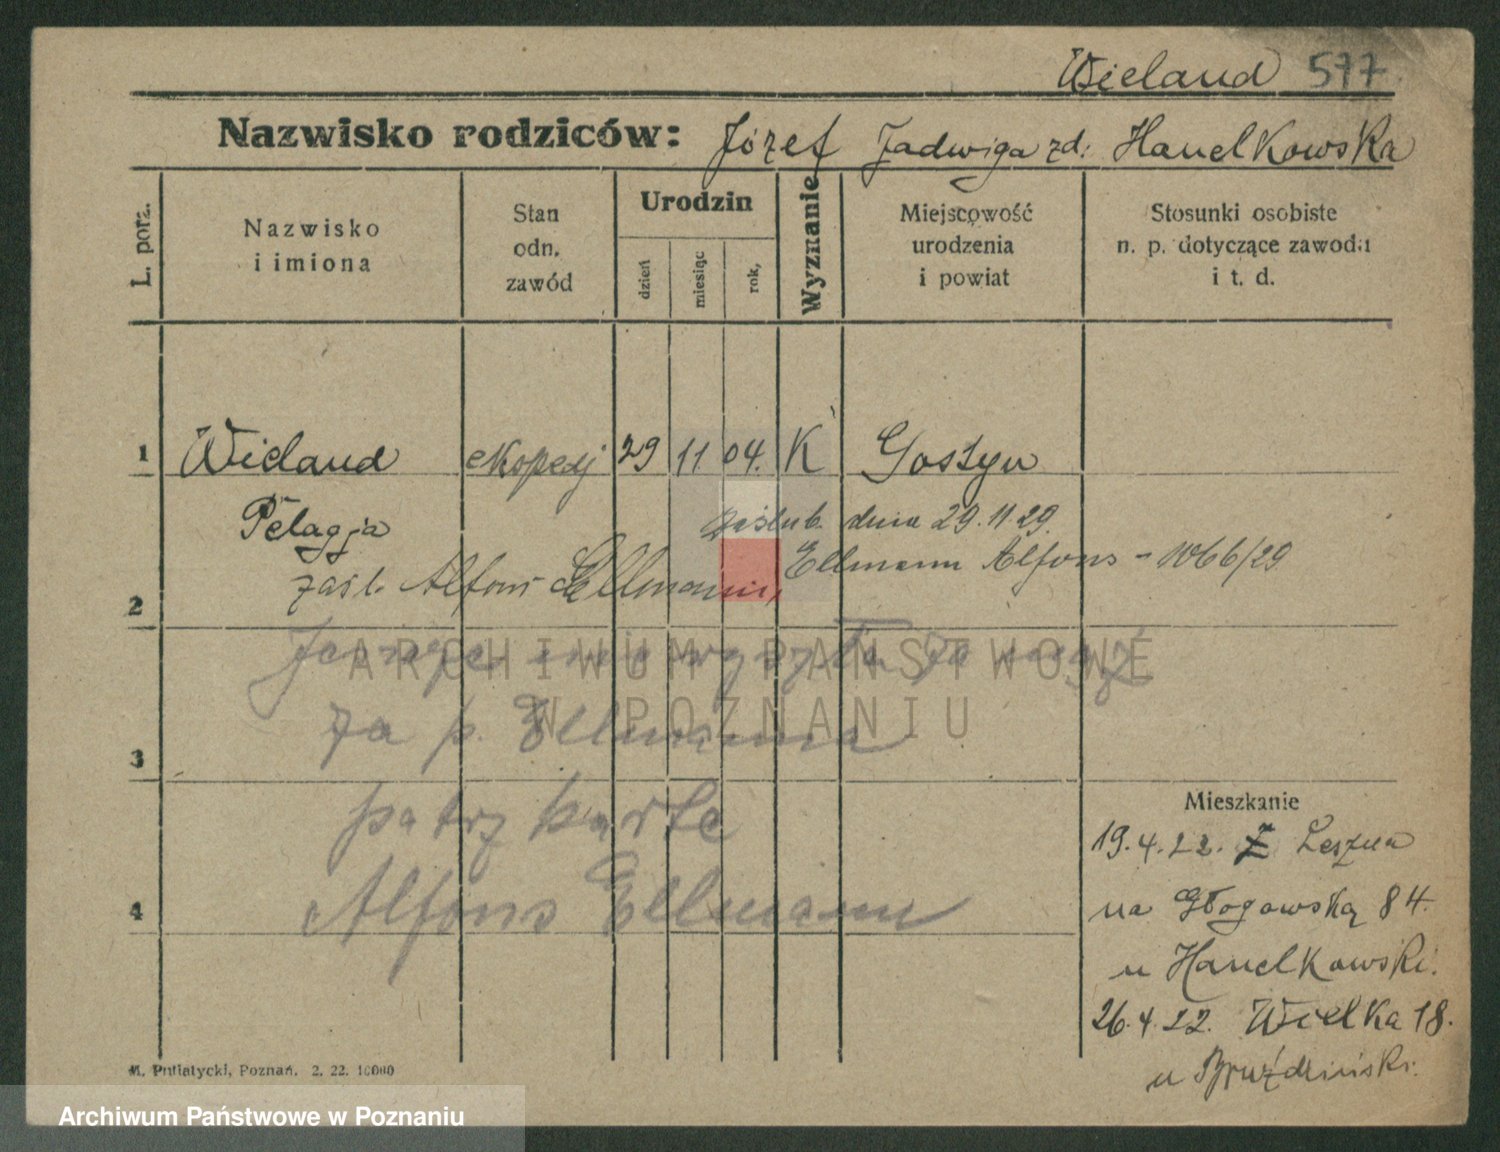 Wieland 577
Nazwisko rodziców: Józef Jadwiga zd: Hanelkowska
L. porz.
Nazwisko
i imiona
Stan
odn.
zawód
Urodzin
dzień
miesiąc
rok,
Wyznanie
Miejscowość
urodzenia
i powiat
Stosunki osobiste
n. p. dotyczące zawodu
i t. d.
1 Wieland ekspedj 29 11 04. K Gostyn
Pelagja
zaślub. dnia 29.11.29.
Ellmann Alfons - 1066/29
2 zaśl. Alfons Ellmann,
wyszła za mąż
3 za p. Ellmanna
patrz kartę
4 Alfons Ellmann
Mieszkanie
19.4.22. Z Leszna
na Głogowską 84.
u Hanelkowski.
26.4.22. Wielka 18.
u Bruździński.
M. Putiatycki, Poznań. 2. 22. 10000
ARCHIWUM PAŃSTWOWE
W POZNANIU
Archiwum Państwowe w Poznaniu